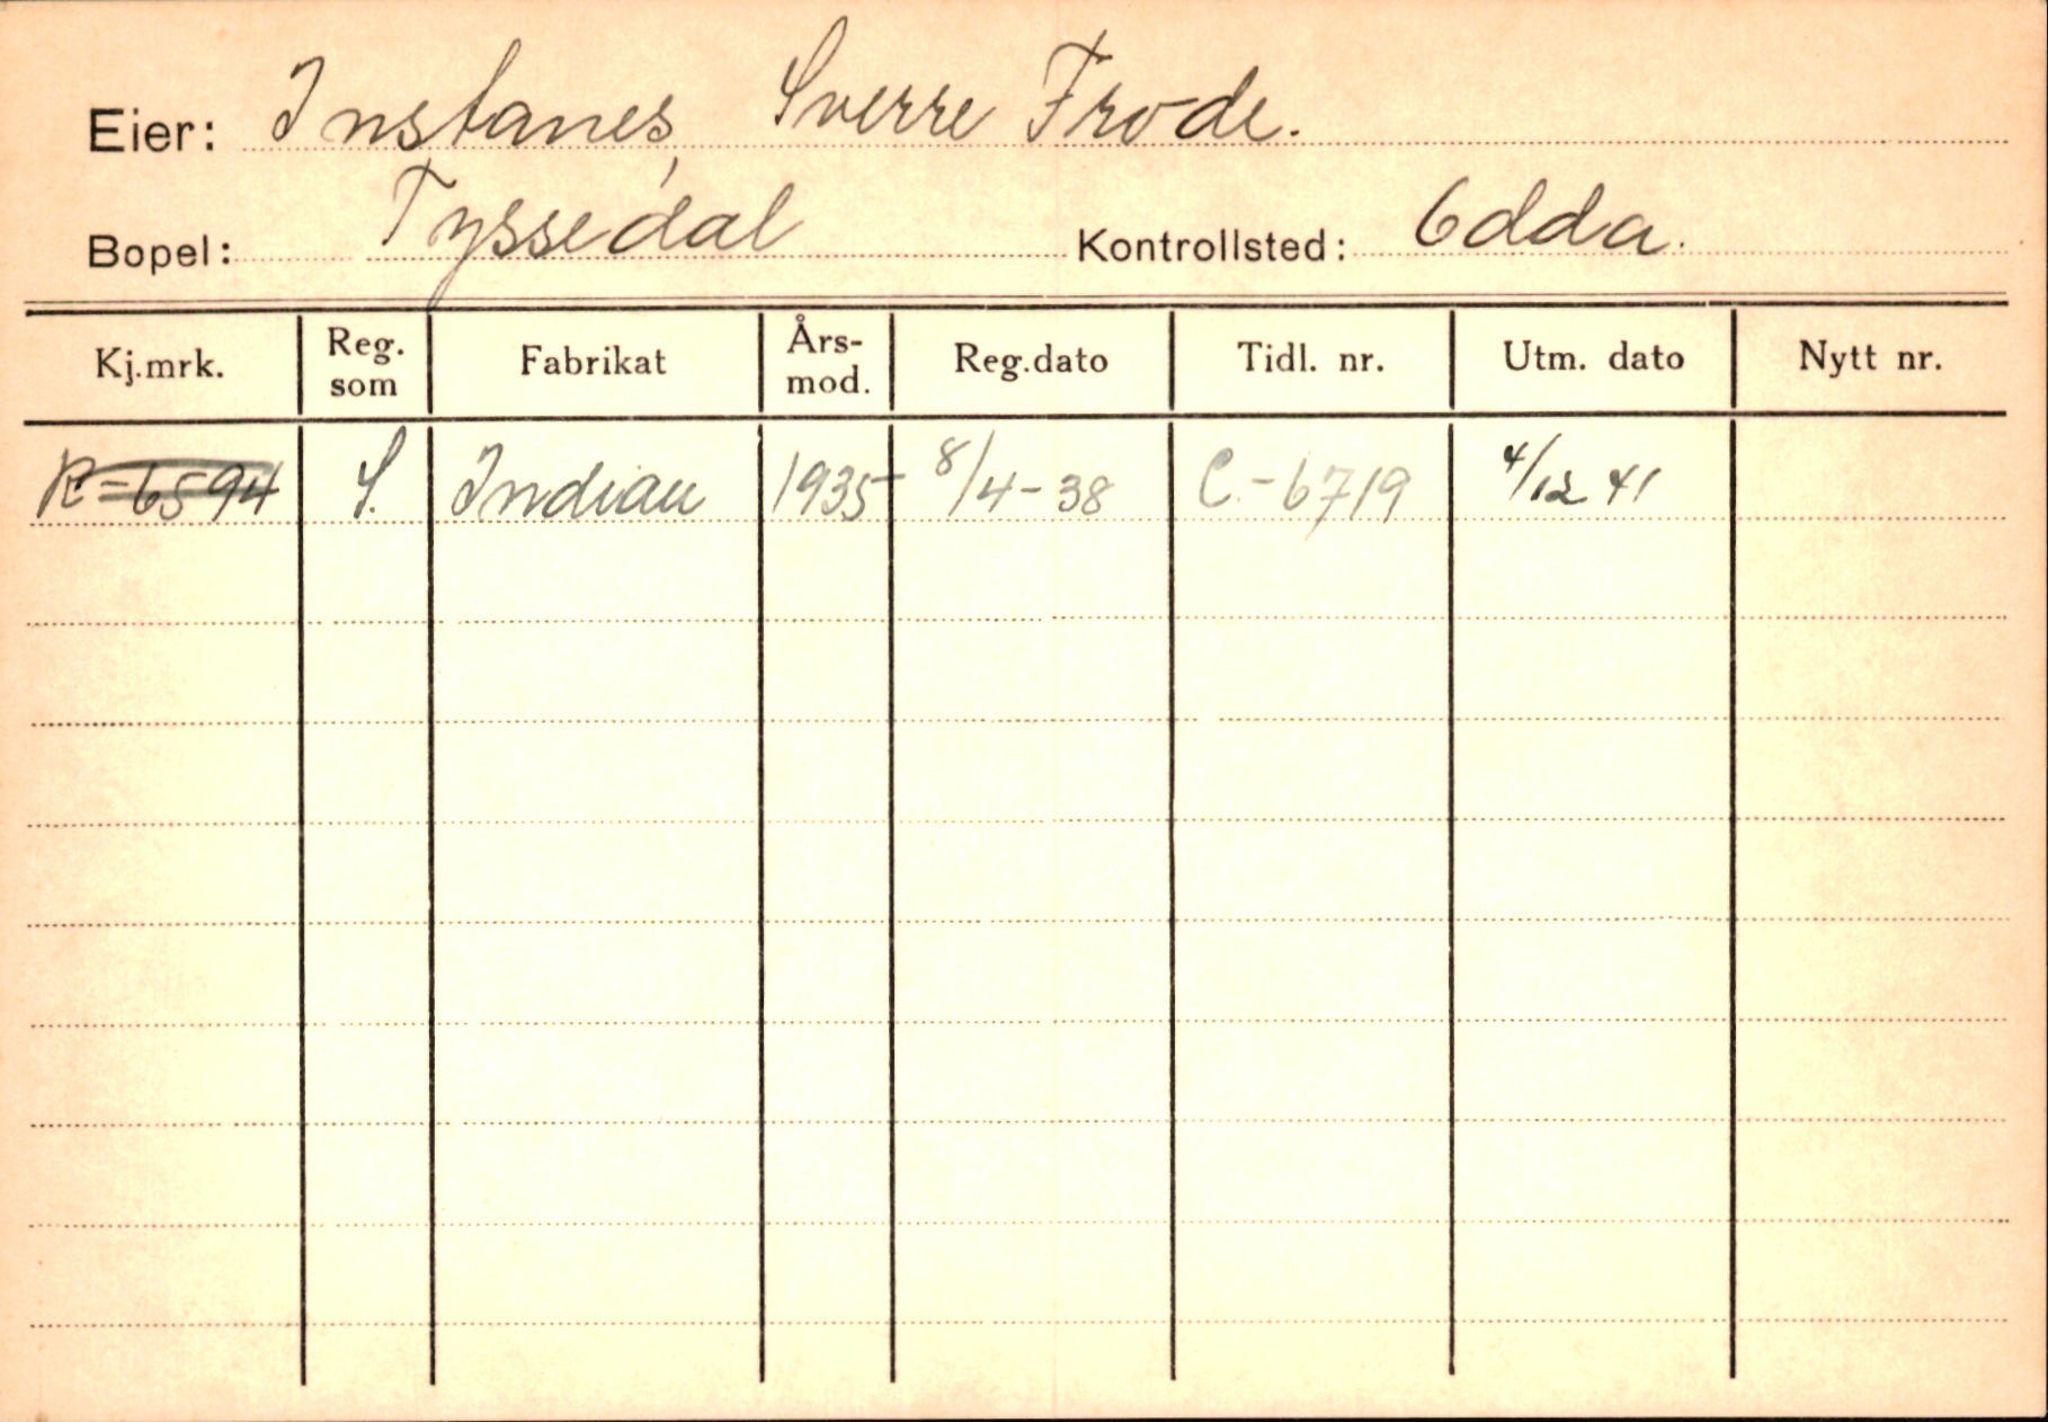 Eier: Instanes, Sverre Frode.
Bopel: Tyssedal Kontrollsted: Odda.
Kj.mrk. Reg. som Fabrikat Års-mod. Reg.dato Tidl. nr. Utm. dato Nytt nr.
R-6594 S. Indian 1935 8/4-38 C.-6719 4/12 41